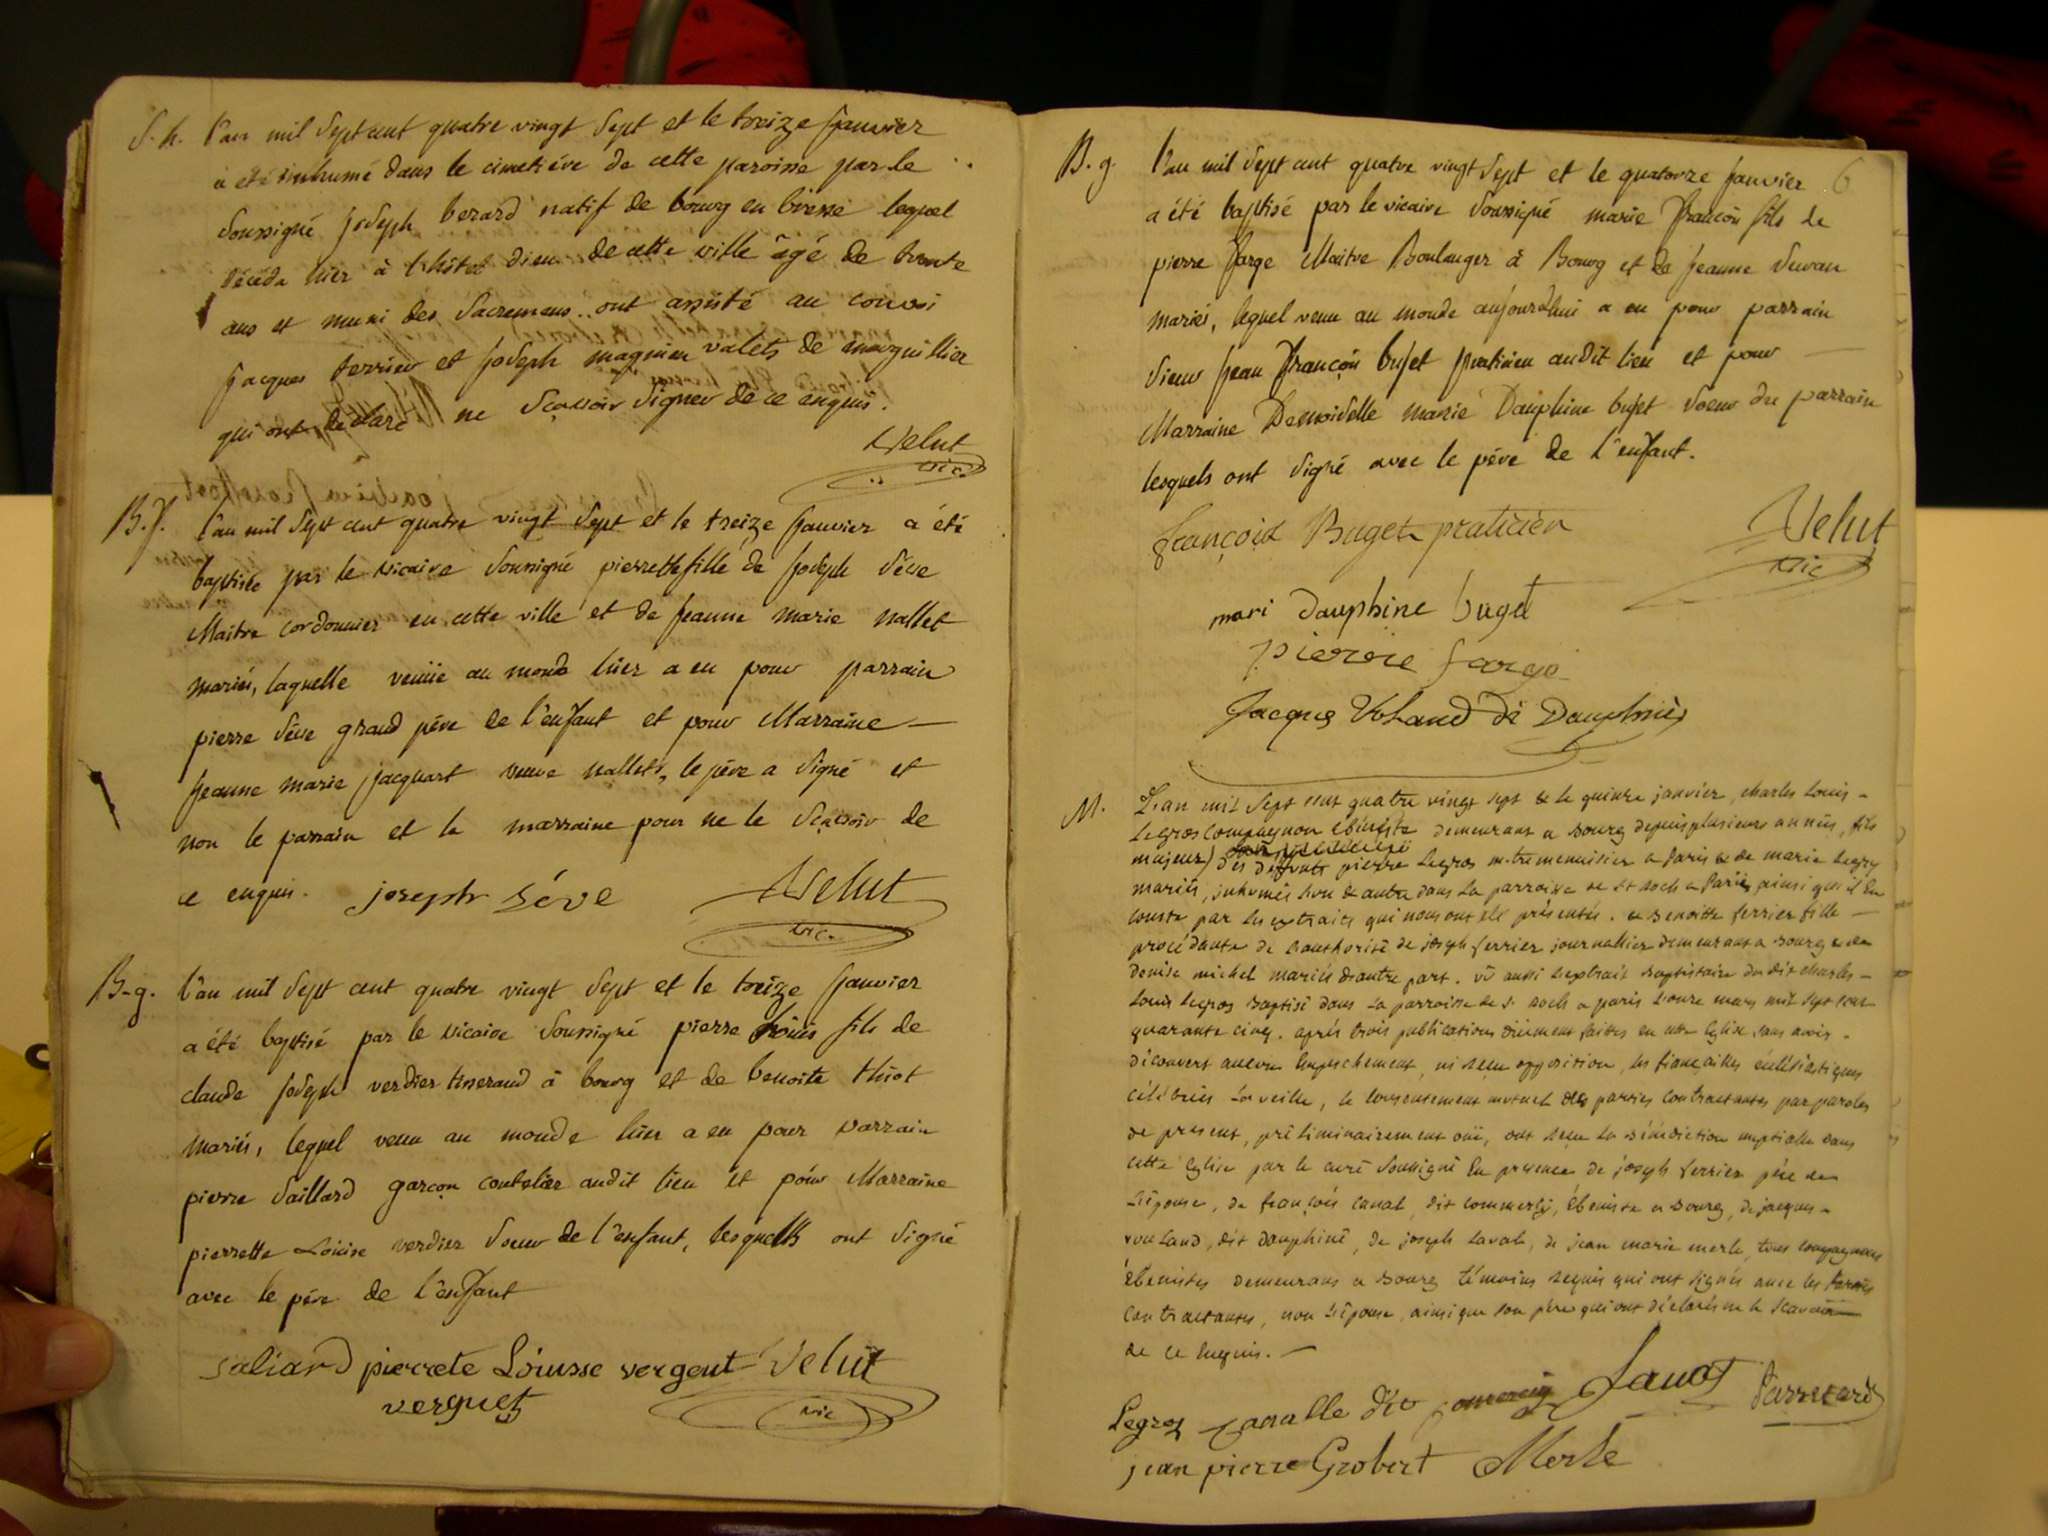 S. h. l'an mil sept cent quatre vingt sept et le treize janvier
a été inhumé dans le cimetiére de cette paroisse par le
soussigné joseph berard natif de bourg en bresse lequel
décéda hier à l'hôtel dieu de cette ville âgé de trente
ans et muni des sacremens. ont assisté au convoi
jacques terrier et joseph magnien valets de marguillier
qui ont déclaré ne sçavoir signer de ce enquis.
Velut
vic.
B. f. l'an mil sept cent quatre vingt sept et le treize janvier a été
baptisée par le vicaire soussigné pierrette fille de joseph séve
Maitre cordonnier en cette ville et de jeanne marie nallet
mariés, laquelle venüe au monde hier a eu pour parrain
pierre séve grand pére de l'enfant et pour Marraine
jeanne marie jacquart veuve nallet, le pére a signé et
non le parrain et la marraine pour ne le sçavoir de
ce enquis. joseph séve Velut
vic.
B. g. l'an mil sept cent quatre vingt sept et le treize janvier
a été baptisé par le vicaire soussigné pierre loüis fils de
claude joseph verdier tisserand à bourg et de benoite thiot
mariés, lequel venu au monde hier a eu pour parrain
pierre saillard garçon coutelier audit lieu et pour Marraine
pierrette Loüise verdier soeur de l'enfant, lesquels ont signé
avec le pére de l'enfant
saliard pierrete Loüisse vergeut Velut
verguet vic
B. g. l'an mil sept cent quatre vingt sept et le quatorze janvier 6
a été baptisé par le vicaire soussigné marie françois fils de
pierre farge Maitre Boulanger à Bourg et de jeanne
mariés, lequel venu au monde aujourdhui a eu pour parrain
sieur jean françois bujet praticien audit lieu et pour
Marraine Demoiselle marie Dauphine bujet soeur du parrain
lesquels ont signé avec le pére de l'enfant.
françois Buget praticien Velut
vic
mari Dauphine buget
pierre farge
Jacques Voland di Dauphiné
M. L'an mil sept cent quatre vingt sept & le quinze janvier, charles Louis
Legros compagnon ébéniste demeurant a Bourg depuis plusieurs années, fils
majeur des deffunts pierre Legros mtre menuisier a Paris & de marie
mariés, inhumés l'un & autre dans la parroisse de St Roch a Paris, ainsi qu'il en
conste par les extraits qui nous ont été présentés. & Benoitte ferrier fille
procédante de l'authorité de joseph ferrier journallier demeurant a Bourg & de
denise michel mariés d'autre part. vû aussi l'extrait Baptistaire du dit charles
Louis Legros Baptisé dans la parroisse de St Roch a paris l'onze mars mil sept cent
quarante cinq. aprés trois publications düement faites en notre Eglise sans avoir
découvert aucun Empeschement, ni reçu opposition, les fiançailles éccléziastiques
célébrées la veille, le consentement mutuel des parties contractantes par paroles
de present, préliminairement oüi, ont reçu la Bénédiction nuptiale dans
cette Eglise par le curé soussigné En présence de joseph ferrier pére de
l'épouse, de françois canal, dit commercy, ébéniste a Bourg, de jacques
vouland, dit dauphiné, de joseph Laval, de jean marie merle, tous compagnons
Ebenistes demeurans a Bourg témoins requis qui ont signés avec les parties
contractantes, non l'épouse, ainsi que son pére qui ont déclarés ne le scavoir
de ce Enquis.
Legros canalle dit comercy
jean pierre Grobert Merle